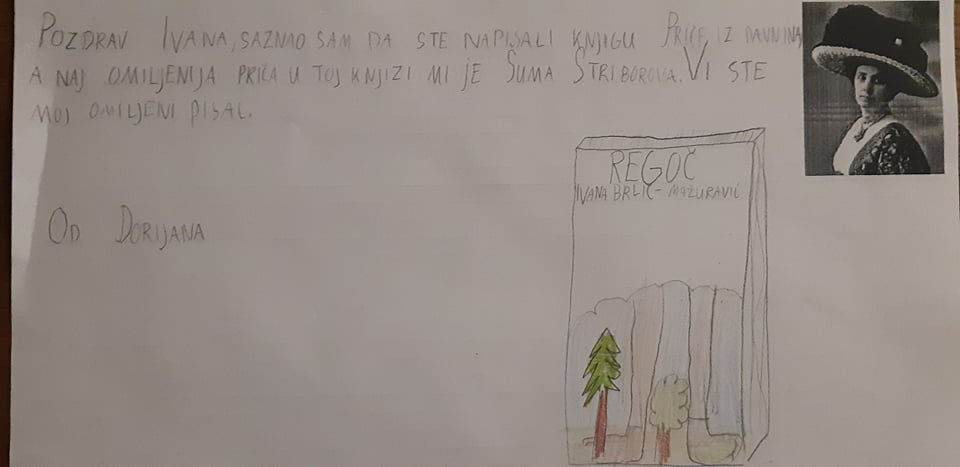 POZDRAV IVANA, SAZNAO SAM DA STE NAPISALI KNJIGU PRIČE IZ DAVNINA
A NAJ OMILJENIJA PRIČA U TOJ KNJIZI MI JE ŠUMA STRIBOROVA. VI STE
MOJ OMILJENI PISAC.
REGOČ
IVANA BRLIĆ-MAŽURAVIĆ
OD DORIJANA